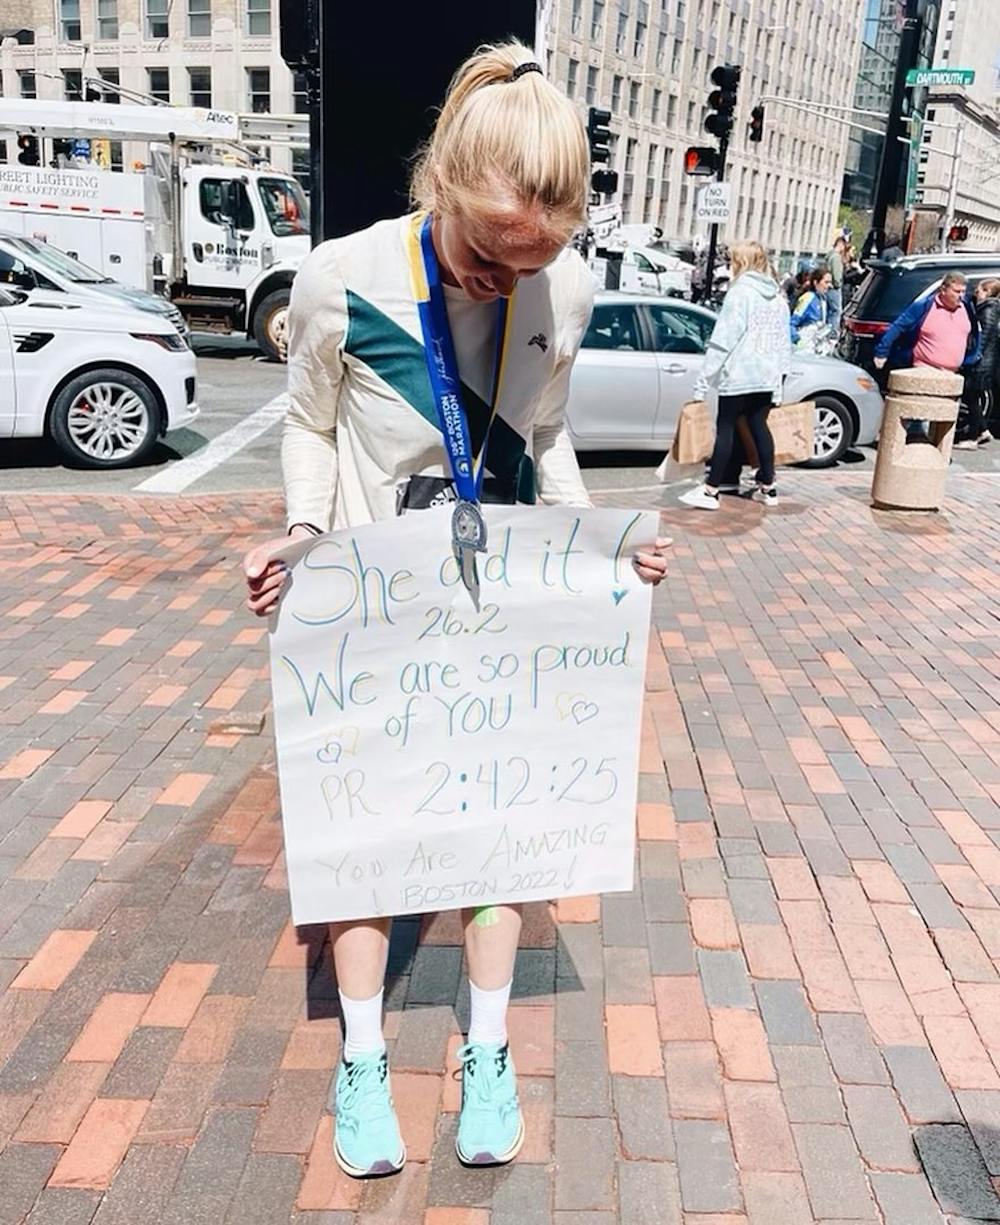 Altec
DARTMOUTH ST
REET LIGHTING
UBLIC SAFETY SERVICE
Boston
PUBLIC WORKS
NO
TURN
ON RED
126TH BOSTON
MARATHON
She did it !
26.2
We are so proud
of YOU
PR 2:42:25
You Are AMAZING
! BOSTON 2022 !